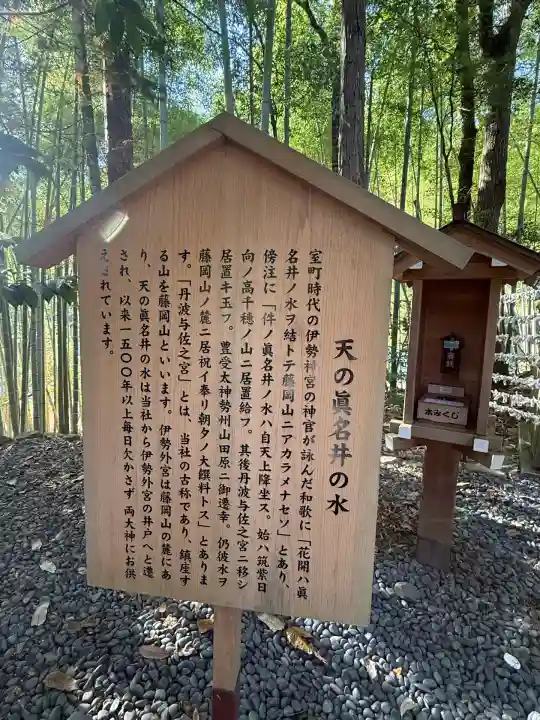 天の眞名井の水
室町時代の伊勢神宮の神官が詠んだ和歌に「花開ハ眞
名井ノ水ヲ結トテ藤岡山ニアカラメナセソ」とあり、
傍注に「件ノ眞名井ノ水ハ自天上降坐ス。始ハ筑紫日
向ノ高千穂ノ山ニ居置給フ。其後丹波与佐之宮ニ移シ
居置キ玉フ。豊受太神勢州山田原ニ御遷幸。仍彼水ヲ
藤岡山ノ麓ニ居祝イ奉リ朝タノ大饌料トス」とありま
す。「丹波与佐之宮」とは、当社の古称であり、鎮座す
る山を藤岡山といいます。伊勢外宮は藤岡山の麓にあ
り、天の眞名井の水は当社から伊勢外宮の井戸へと遷
され、以来一五〇〇年以上毎日欠かさず両大神にお供
えされています。
水みくじ